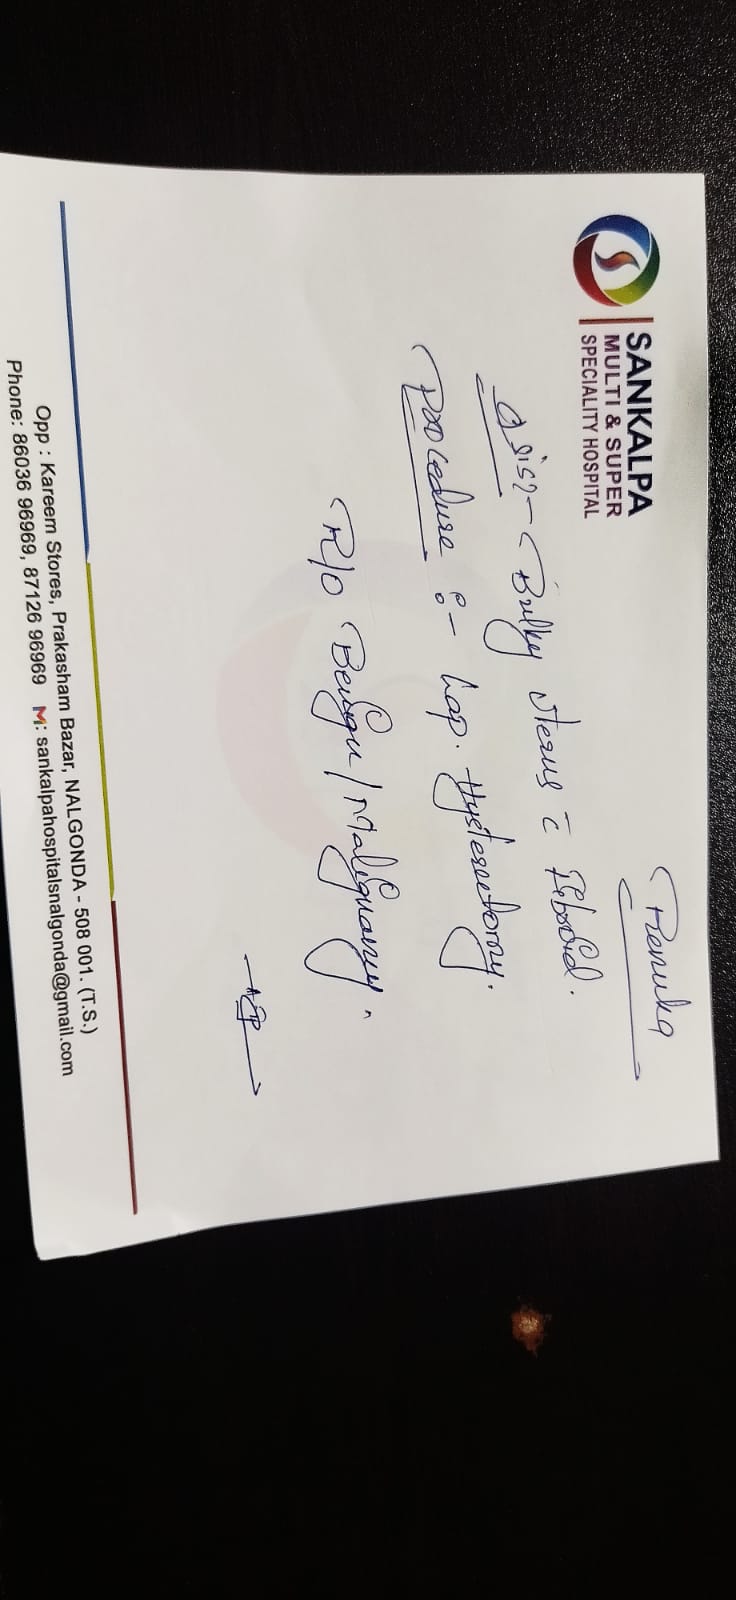 SANKALPA
MULTI & SUPER
SPECIALITY HOSPITAL
Renuka
Bulky uterus c̄ Fibroid.
Procedure :- Lap. Hysterectomy.
R/O Benign / Malignancy.
Opp : Kareem Stores, Prakasham Bazar, NALGONDA - 508 001. (T.S.)
Phone: 86036 96969, 87126 96969 M: sankalpahospitalsnalgonda@gmail.com